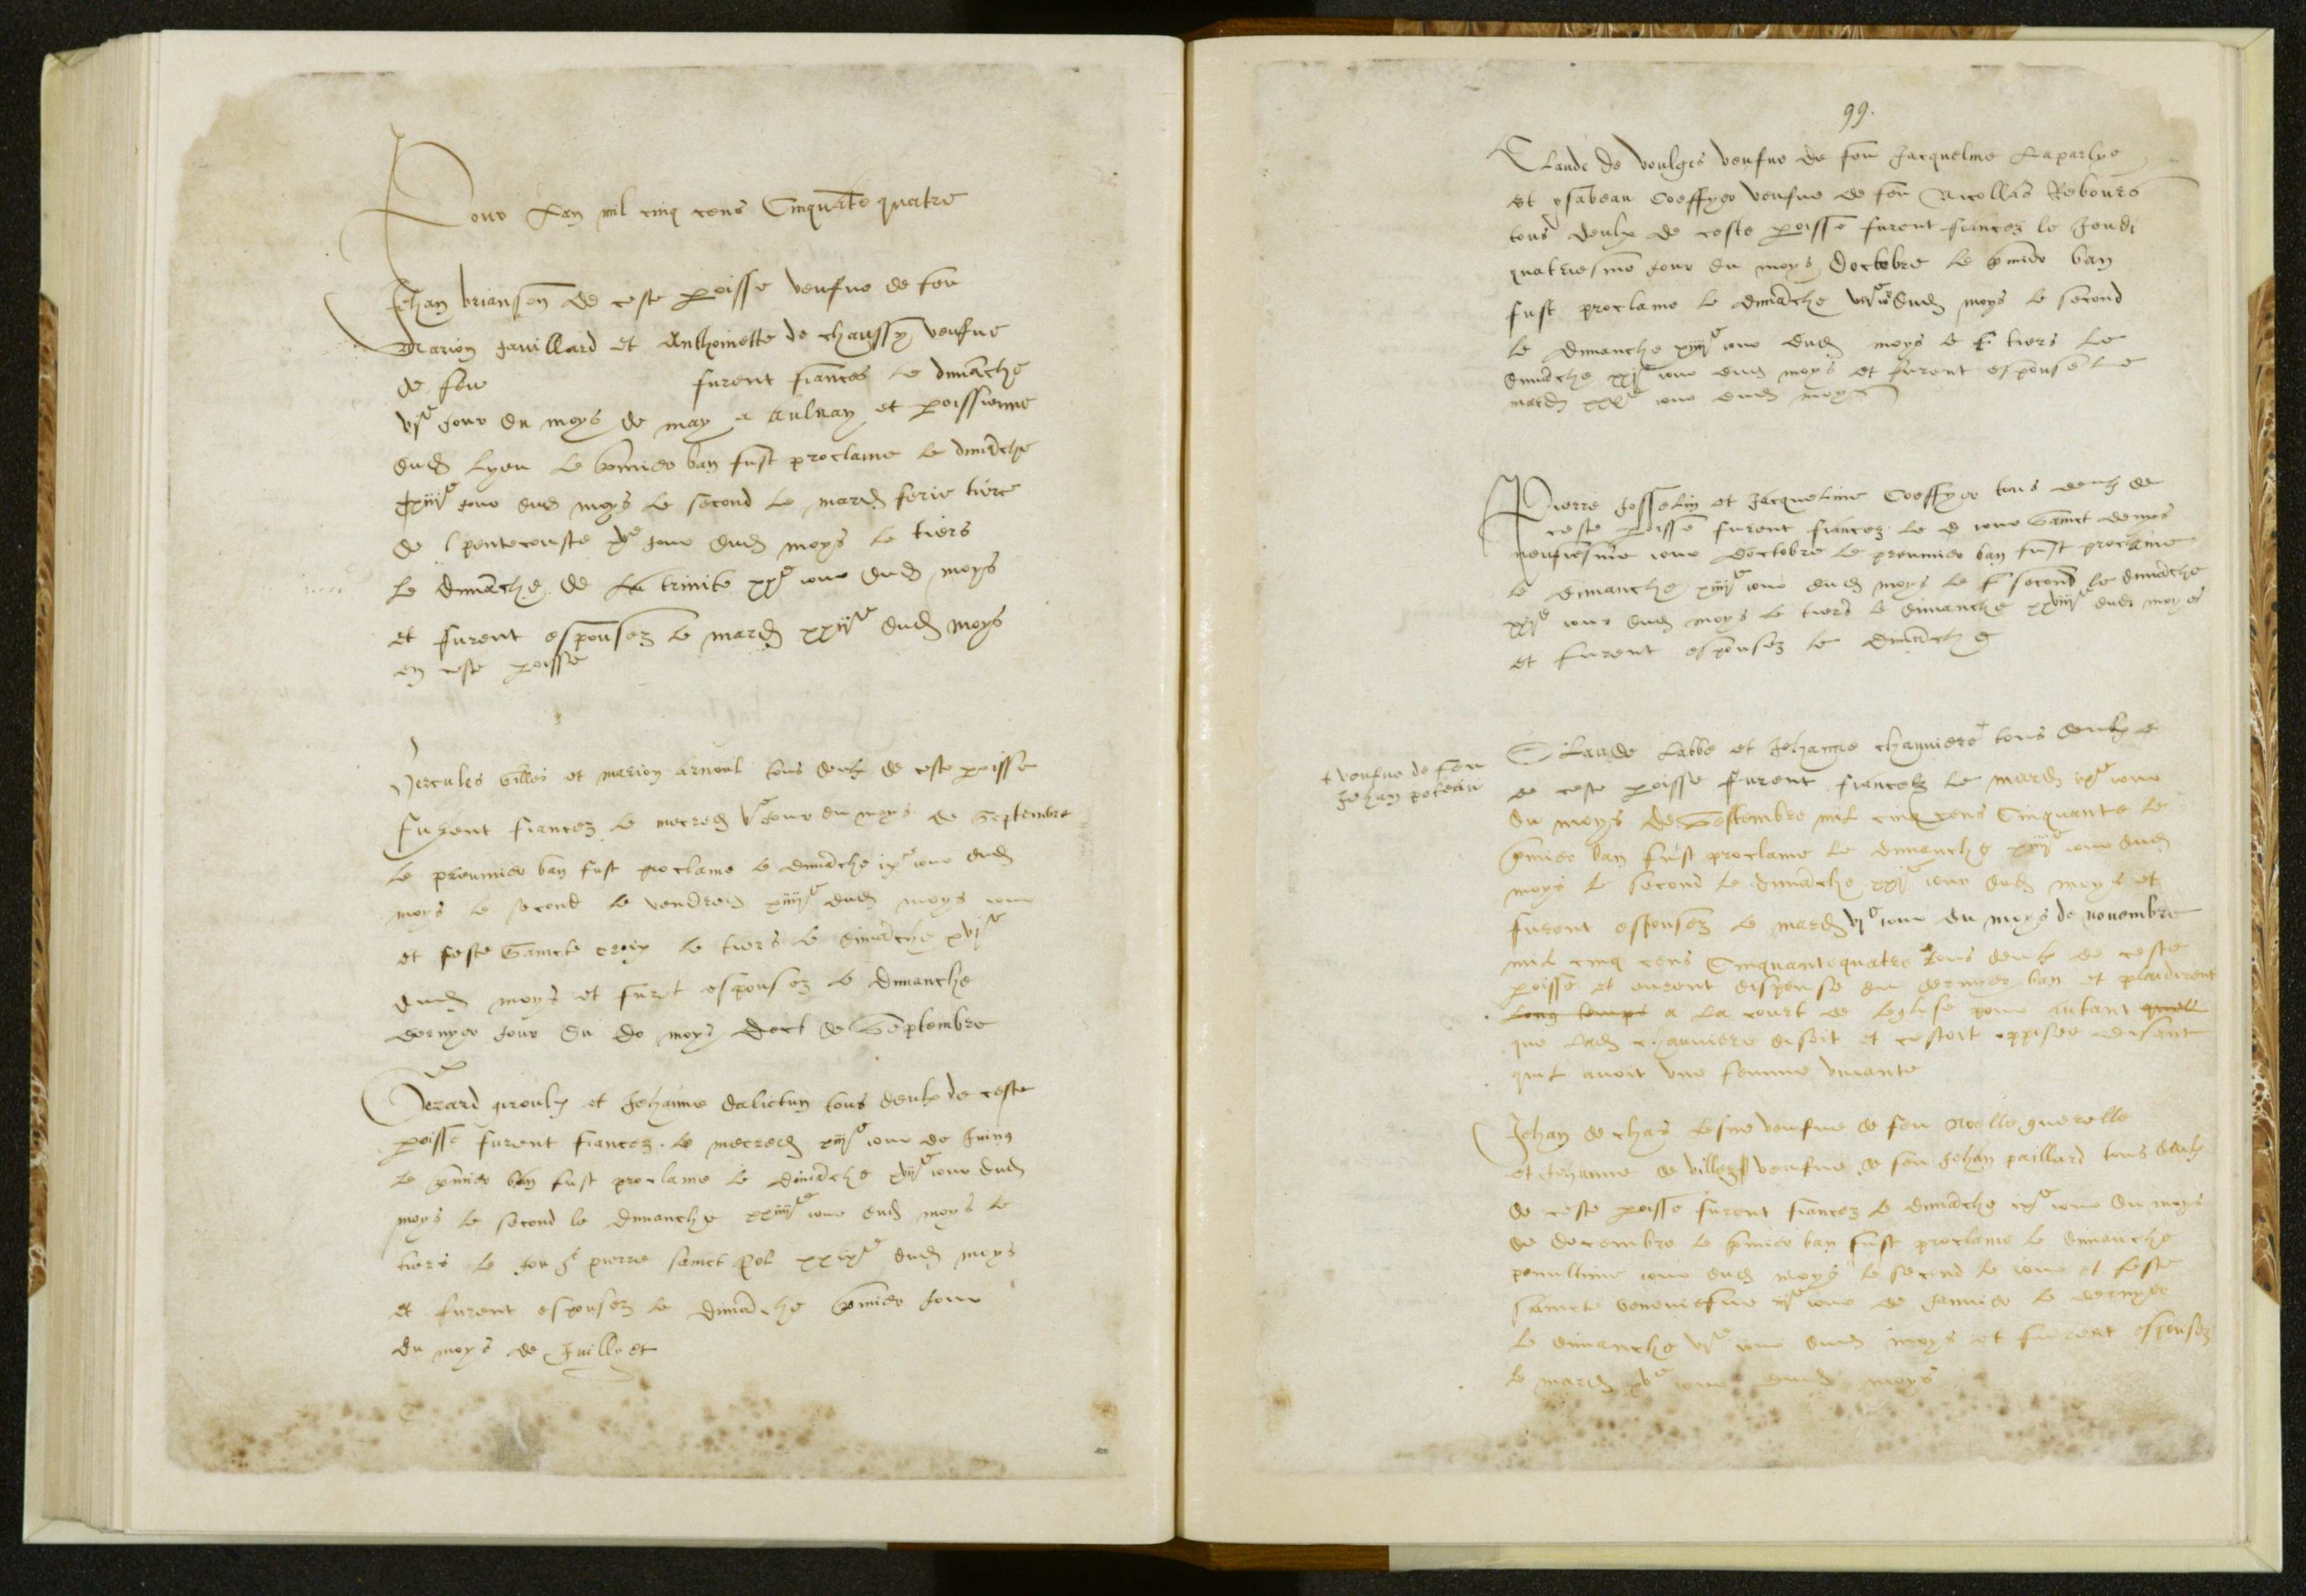 Pour Lan mil cinq cens Cinquate quatre
Jehan brianson de ceste poisse veufue de feu
Marion gauillard et Anthoinette de chaussy veufue
de feu furent fiances le dimache
vje Jour du moys de may a aulnay et poissienne
dud lyeu le pmier ban fust proclame le dimache
xiije Jour dud moys le second le mardy ferie tierce
de penteconste xve Jour dud moys le tiers
le dimache de La trinite xxe iour dud moys
et furent espousez le mardy xxije dud moys
en ceste poisse
Hercules Gilles et marion Arnoul tous deulx de ceste poisse
furent fiancez le mecredy ve Jour du moys de Septembre
le preumier ban fust proclame le dimache ixe iour dud
moys le second le vendredy xiiije dud moys iour
et feste Saincte croix le tiers le dimache xvje
dud moys et furet espousez le dimanche
dernyer Jour du do moys doct de Septembre
Gerard giroulx et Jehanne dalictun tous deulx de ceste
poisse furent fiancez le mecredy xiije iour de Juing
le pmier ban fust proclame le dimache xvije iour dud
moys le second le dimanche xxiiije iour dud moys le
tiers le Jour st pierre sainct pol xxixe dud moys
et furent espousez le dimache pmier Jour
du moys de Juillyet
99.
Claude de voulges veufue de feu Jacqueline Laparlye
et ysabeau Coeffyer veufue de feu Nicollas Rebours
tous deulx de ceste poisse furent fiancez le Jeudi
quatriesme Jour du moys doctobre le pmier ban
fust proclame le dimache dud moys le second
le dimanche xiiije iour dud moys le tiers le
dimache xxje iour dud moys et furent espouse le
mardy xxxe iour dud moys
Pierre Josselin et Jacqueline Coeffyer tous deux de
ceste poisse furent fiancez le iour Sainct denys
neufiesme iour doctobre le preumier ban fust proclame
le dimanche xiiije iour dud moys le second le dimache
xxje iour dud moys le tiers le dimanche xxviije dud moyes
et furent espousez le dimache
Claude Labbe et Jehanne chauuiere + tous deulx
+ veufue de feu
Jehan poteau
de ceste poisse furent fiancelz le mardy ixe iour
du moys de Septembre mil cinq cens Cinquante le
pmier ban fust proclame le dimanche xiiije iour dud
moys le second le dimache xxje iour dud moys et
furent espousez le mardy vje iour du moys de nouembre
mil cinq cens Cinquantequatre tous deulx de ceste
poisse et eurent dispense du dernyer ban et plaidirent
long temps a La court de leglise pour autant quele
que Lad chauuiere disoit et cestoit opposee disant
quil auoit vne femme viuante
Jehan de chas Lesne veufue de feu Noelle querelle
et Jehanne de villers veufue de feu Jehan paillard tous deulx
de ceste poisse furent fiancez le dimache ixe iour du moys
de decembre le pmier ban fust proclame le dimanche
penultime iour dud moys le second le iour et feste
saincte Geneuiefue iije iour de Januier le dernyer
le dimanche vje iour dud moys et furent espousez
le mardy xve iour dud moys